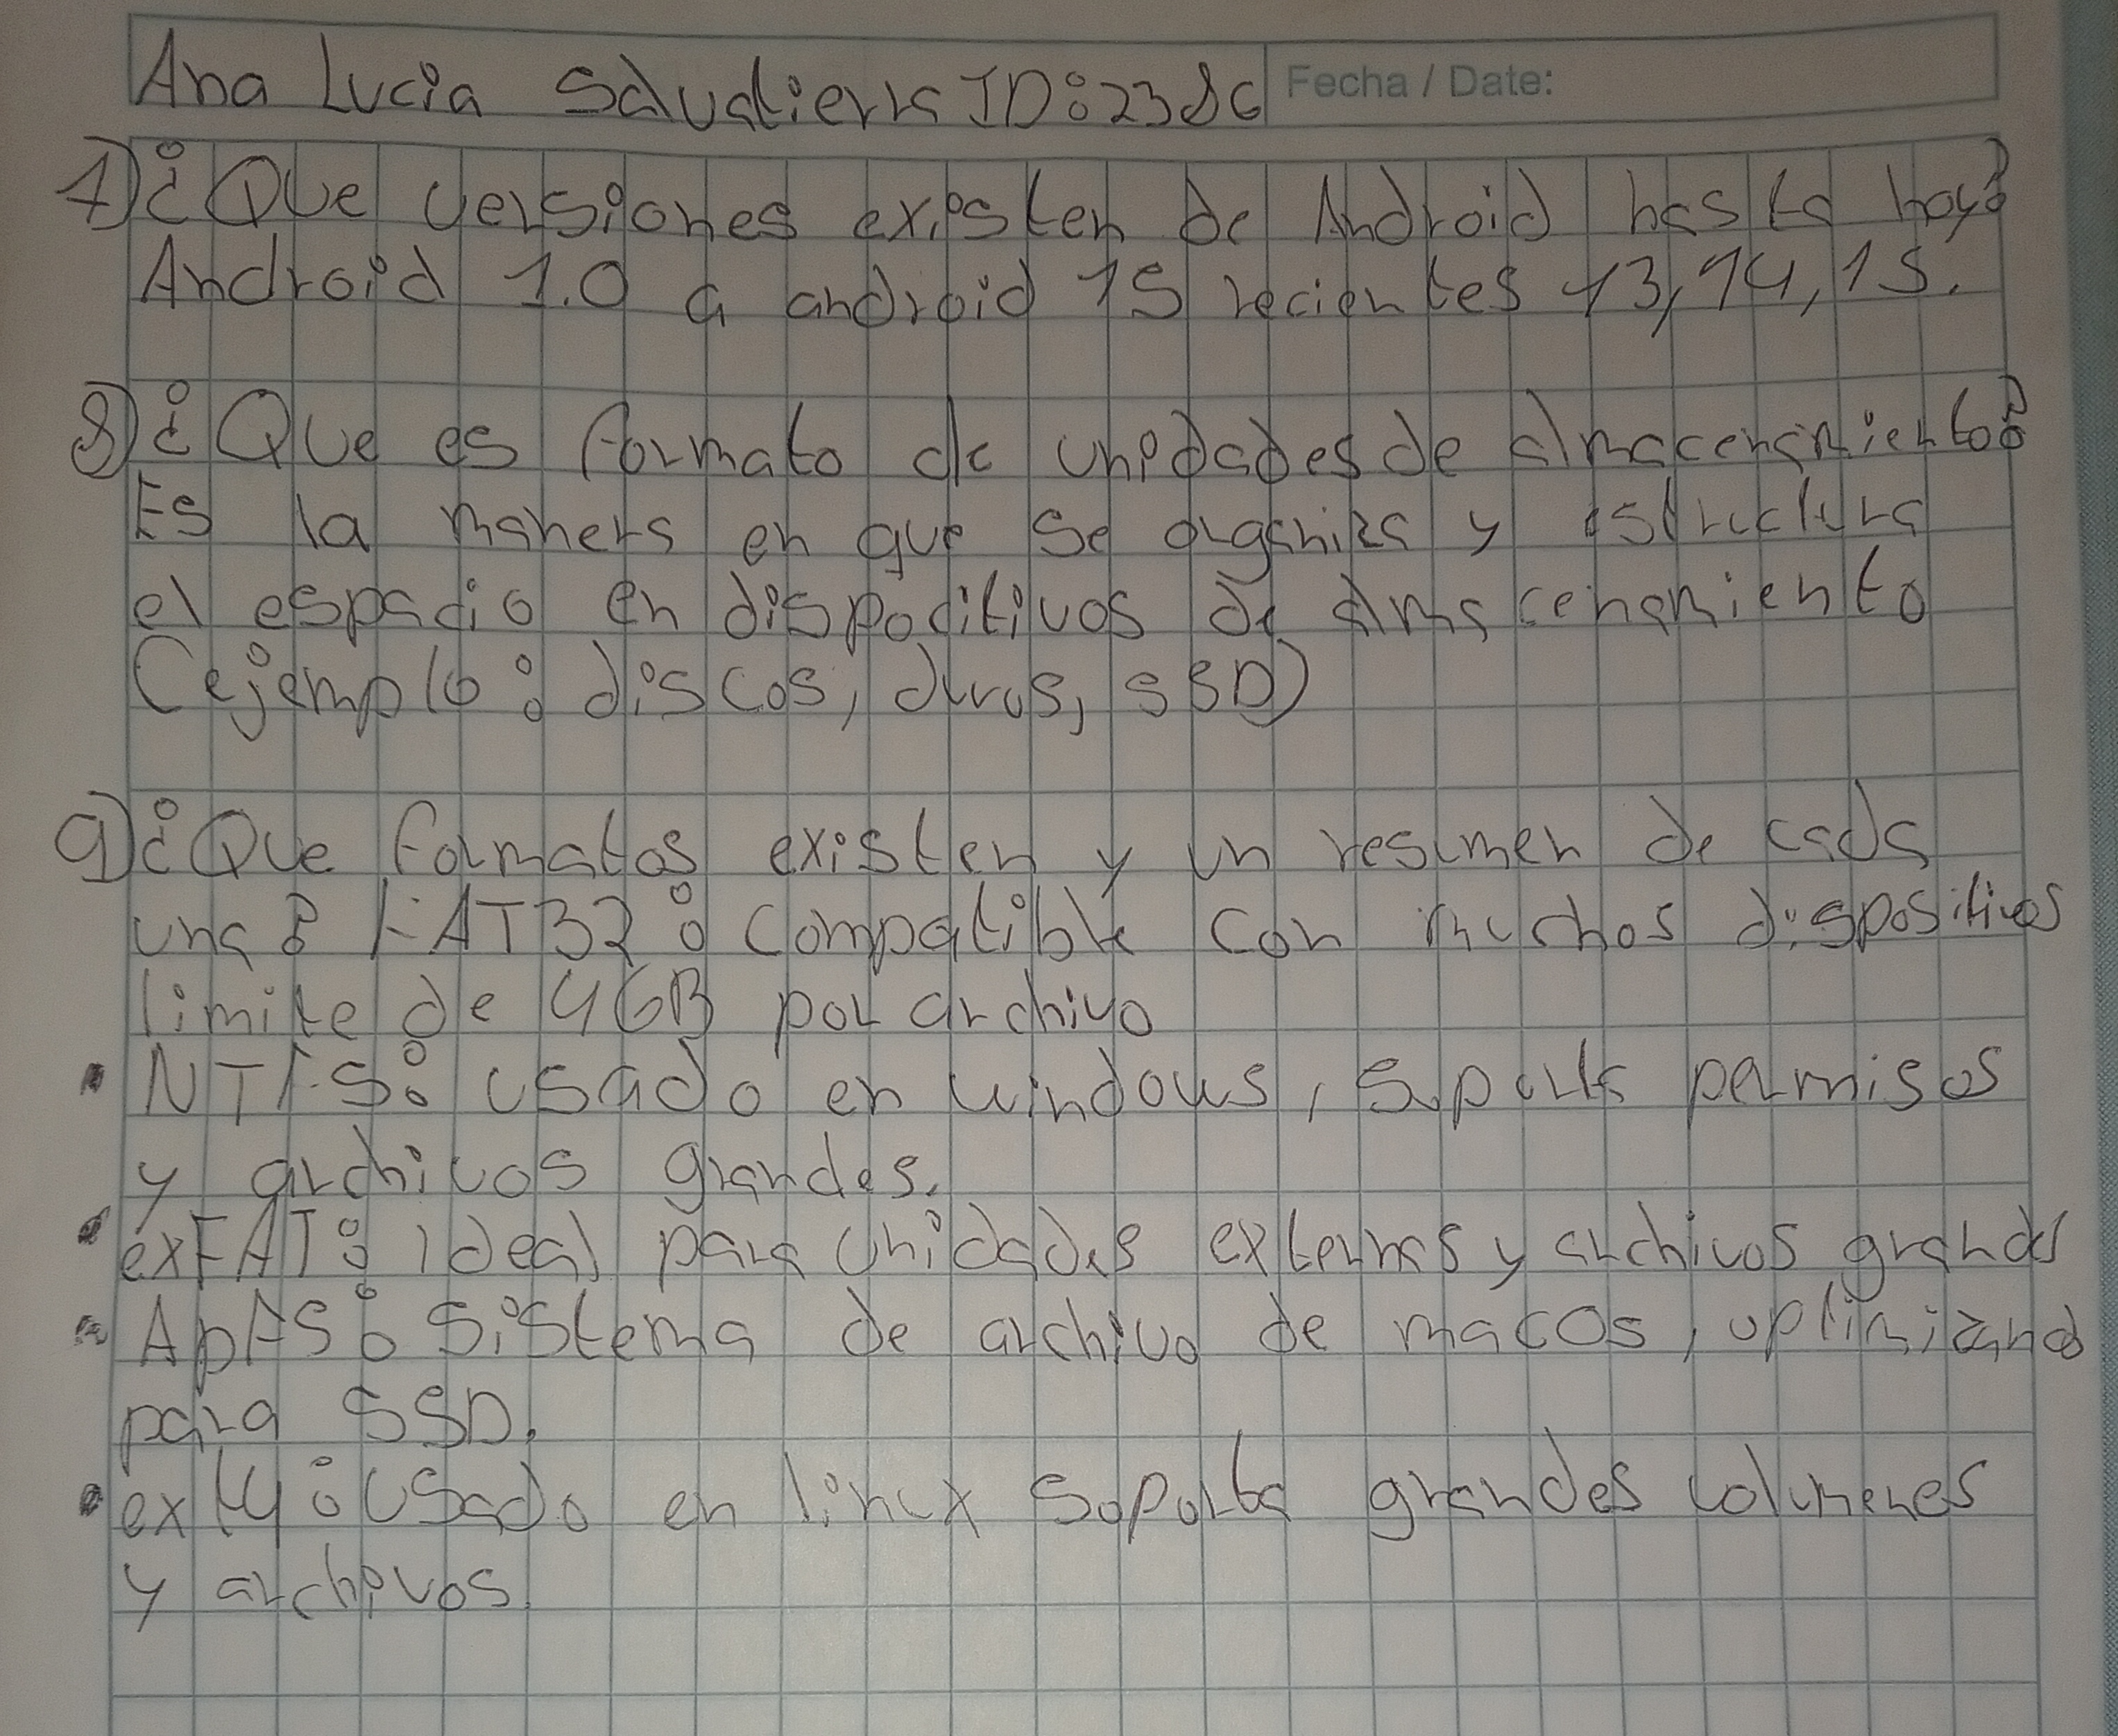 Ana Lucia Salvatierra ID:2386
Fecha / Date:
7) ¿Que versiones existen de Android hasta hoy?
Android 1.0 a android 15 recientes 13, 14, 15.
8) ¿Que es formato de unidades de almacenamiento?
Es la manera en que se organiza y estructura
el espacio en dispocitivos de almacenamiento
(ejemplo: discos, duros, SSD)
9) ¿Que formatos existen y un resumen de cada
una? FAT32: compatible con muchos dispositivos
limite de 4GB por archivo
• NTFS: usado en windows, soporta permisos
y archivos grandes.
• exFAT: ideal para unidades externas y archivos grandes
• ApFS: sistema de archivo de macOs, optimizando
para SSD.
• ext4: Usado en linux soporta grandes volumenes
y archivos.